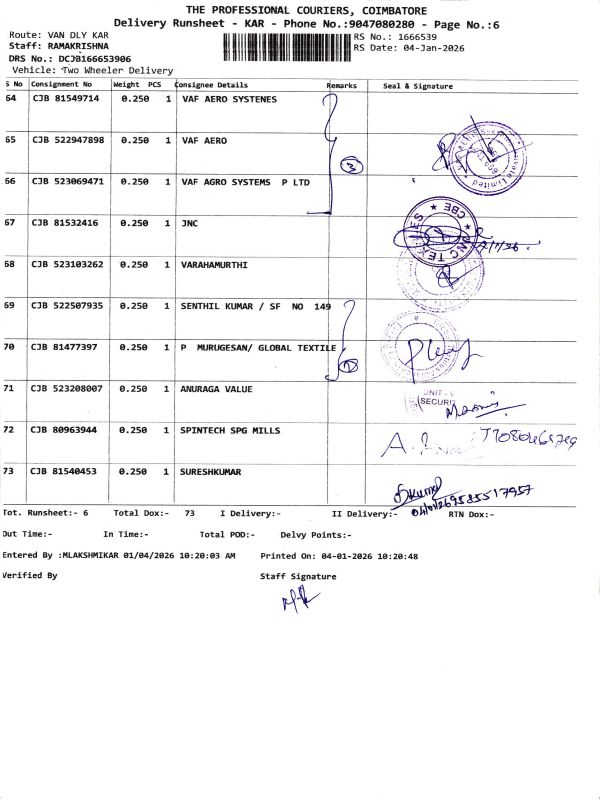 THE PROFESSIONAL COURIERS, COIMBATORE
Delivery Runsheet - KAR - Phone No.:9047080280 - Page No.:6
Route: VAN DLY KAR
RS No.: 1666539
Staff: RAMAKRISHNA
RS Date: 04-Jan-2026
DRS No.: DCJB166653906
Vehicle: Two Wheeler Delivery
S No Consignment No Weight PCS Consignee Details Remarks Seal & Signature
64 CJB 81549714 0.250 1 VAF AERO SYSTENES
65 CJB 522947898 0.250 1 VAF AERO
3
66 CJB 523069471 0.250 1 VAF AGRO SYSTEMS P LTD
67 CJB 81532416 0.250 1 JNC
CBE
68 CJB 523103262 0.250 1 VARAHAMURTHI
69 CJB 522507935 0.250 1 SENTHIL KUMAR / SF NO 149
70 CJB 81477397 0.250 1 P MURUGESAN/ GLOBAL TEXTILE
71 CJB 523208007 0.250 1 ANURAGA VALUE
UNIT -
SECURIT
72 CJB 80963944 0.250 1 SPINTECH SPG MILLS
73 CJB 81540453 0.250 1 SURESHKUMAR
Tot. Runsheet:- 6 Total Dox:- 73 I Delivery:- II Delivery:- RTN Dox:-
Out Time:- In Time:- Total POD:- Delvy Points:-
Entered By :MLAKSHMIKAR 01/04/2026 10:20:03 AM Printed On: 04-01-2026 10:20:48
Verified By Staff Signature